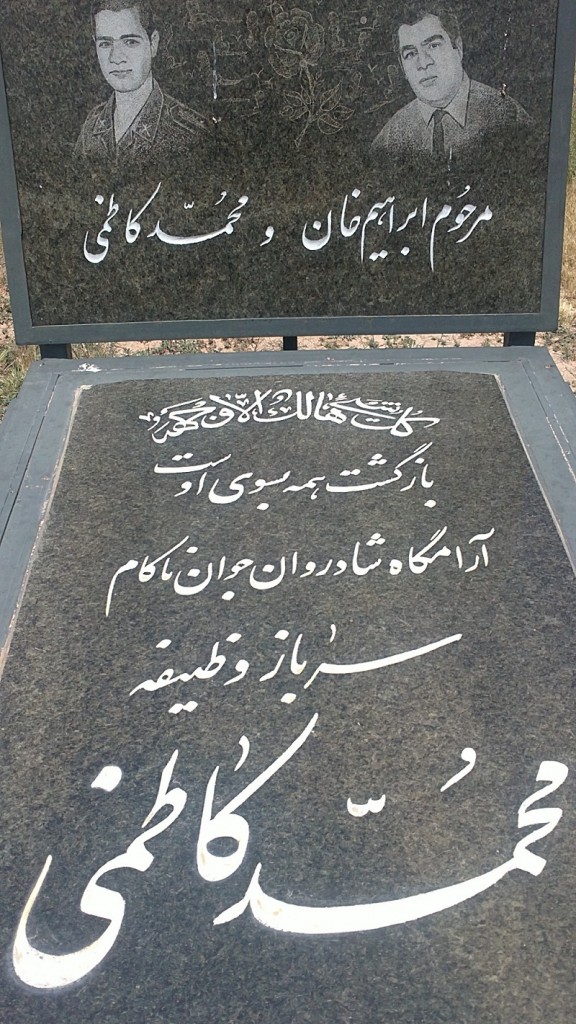 مرحوم ابراهیم خان و محمّد کاظمی
کل شئ هالک الّا وجهه
بازگشت همه بسوی اوست
آرامگاه شادروان جوان ناکام
سرباز وظیفه
محُمّد کاظمی